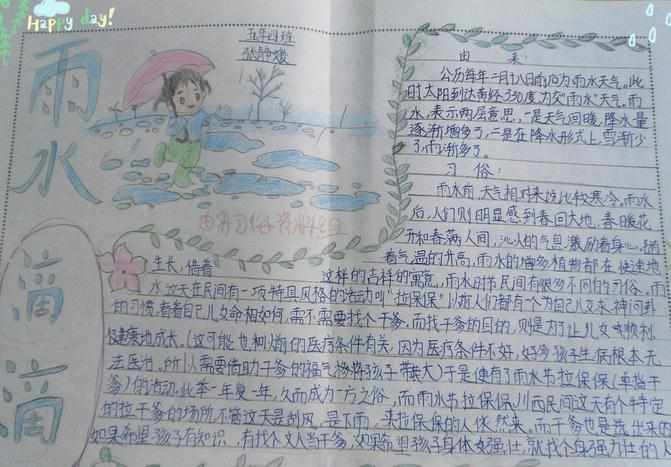 Happy day!
雨水
滴滴
五年四班
由来:
公历每年二月十八日前后为雨水天气。此
时太阳到达黄经330度,为交“雨水”天气。雨
水,表示两层意思,一是天气回暖,降水量
逐渐增多了,二是在降水形式上,雪渐少
了,雨渐多了。
习俗:
雨水前,天气相对来说比较寒冷。雨水
后,人们则明显感到春回大地,春暖花
开和春满人间,沁人的气息激励着身心。随
着气温的升高,雨水的增多植物都在快速地
生长,借着
这样的吉祥的寓意,雨水时节民间有很多不同的习俗。雨
水这天在民间有一项特具风格的活动叫“拉保保”以前人们都有个为自己儿女求神问卦
的习惯,看看自己儿女命相如何,需不需要找个干爹。而找干爹的目的,则是为了让儿女顺利,
健康地成长。(这可能也和以前的医疗条件有关,因为医疗条件不好,好多孩子生病根本无
法医治,所以需要借助干爹的福气扬将孩子带大)于是便有了雨水节拉保保(拉干
爹)的活动。此举一年复一年,久而成为一方之俗,而雨水节拉保保,川西民间这天有个特定
的拉干爹的场所不管这天是刮风,是下雨,来拉保保的人依然来。而干爹也是找出来的
如果希望孩子有知识,有找个文人当干爹,如果希望孩子身体好强壮,就找个身强力壮的人